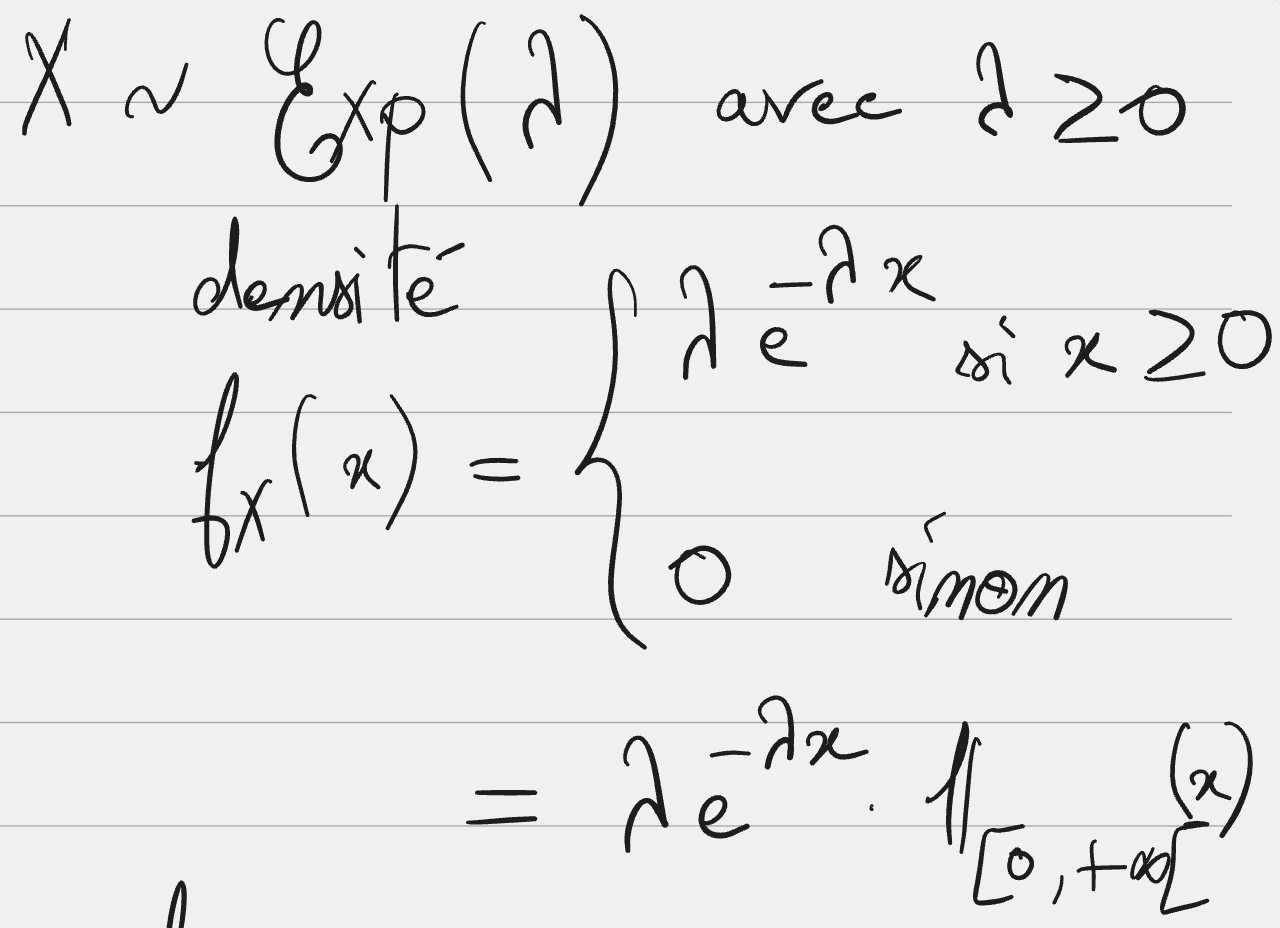 X ~ Exp(λ) avec λ ≥ 0
densité
f_X(x) = { λe^{-λx} si x ≥ 0
0 sinon
= λe^{-λx} · 𝟙_{[0,+∞[}(x)